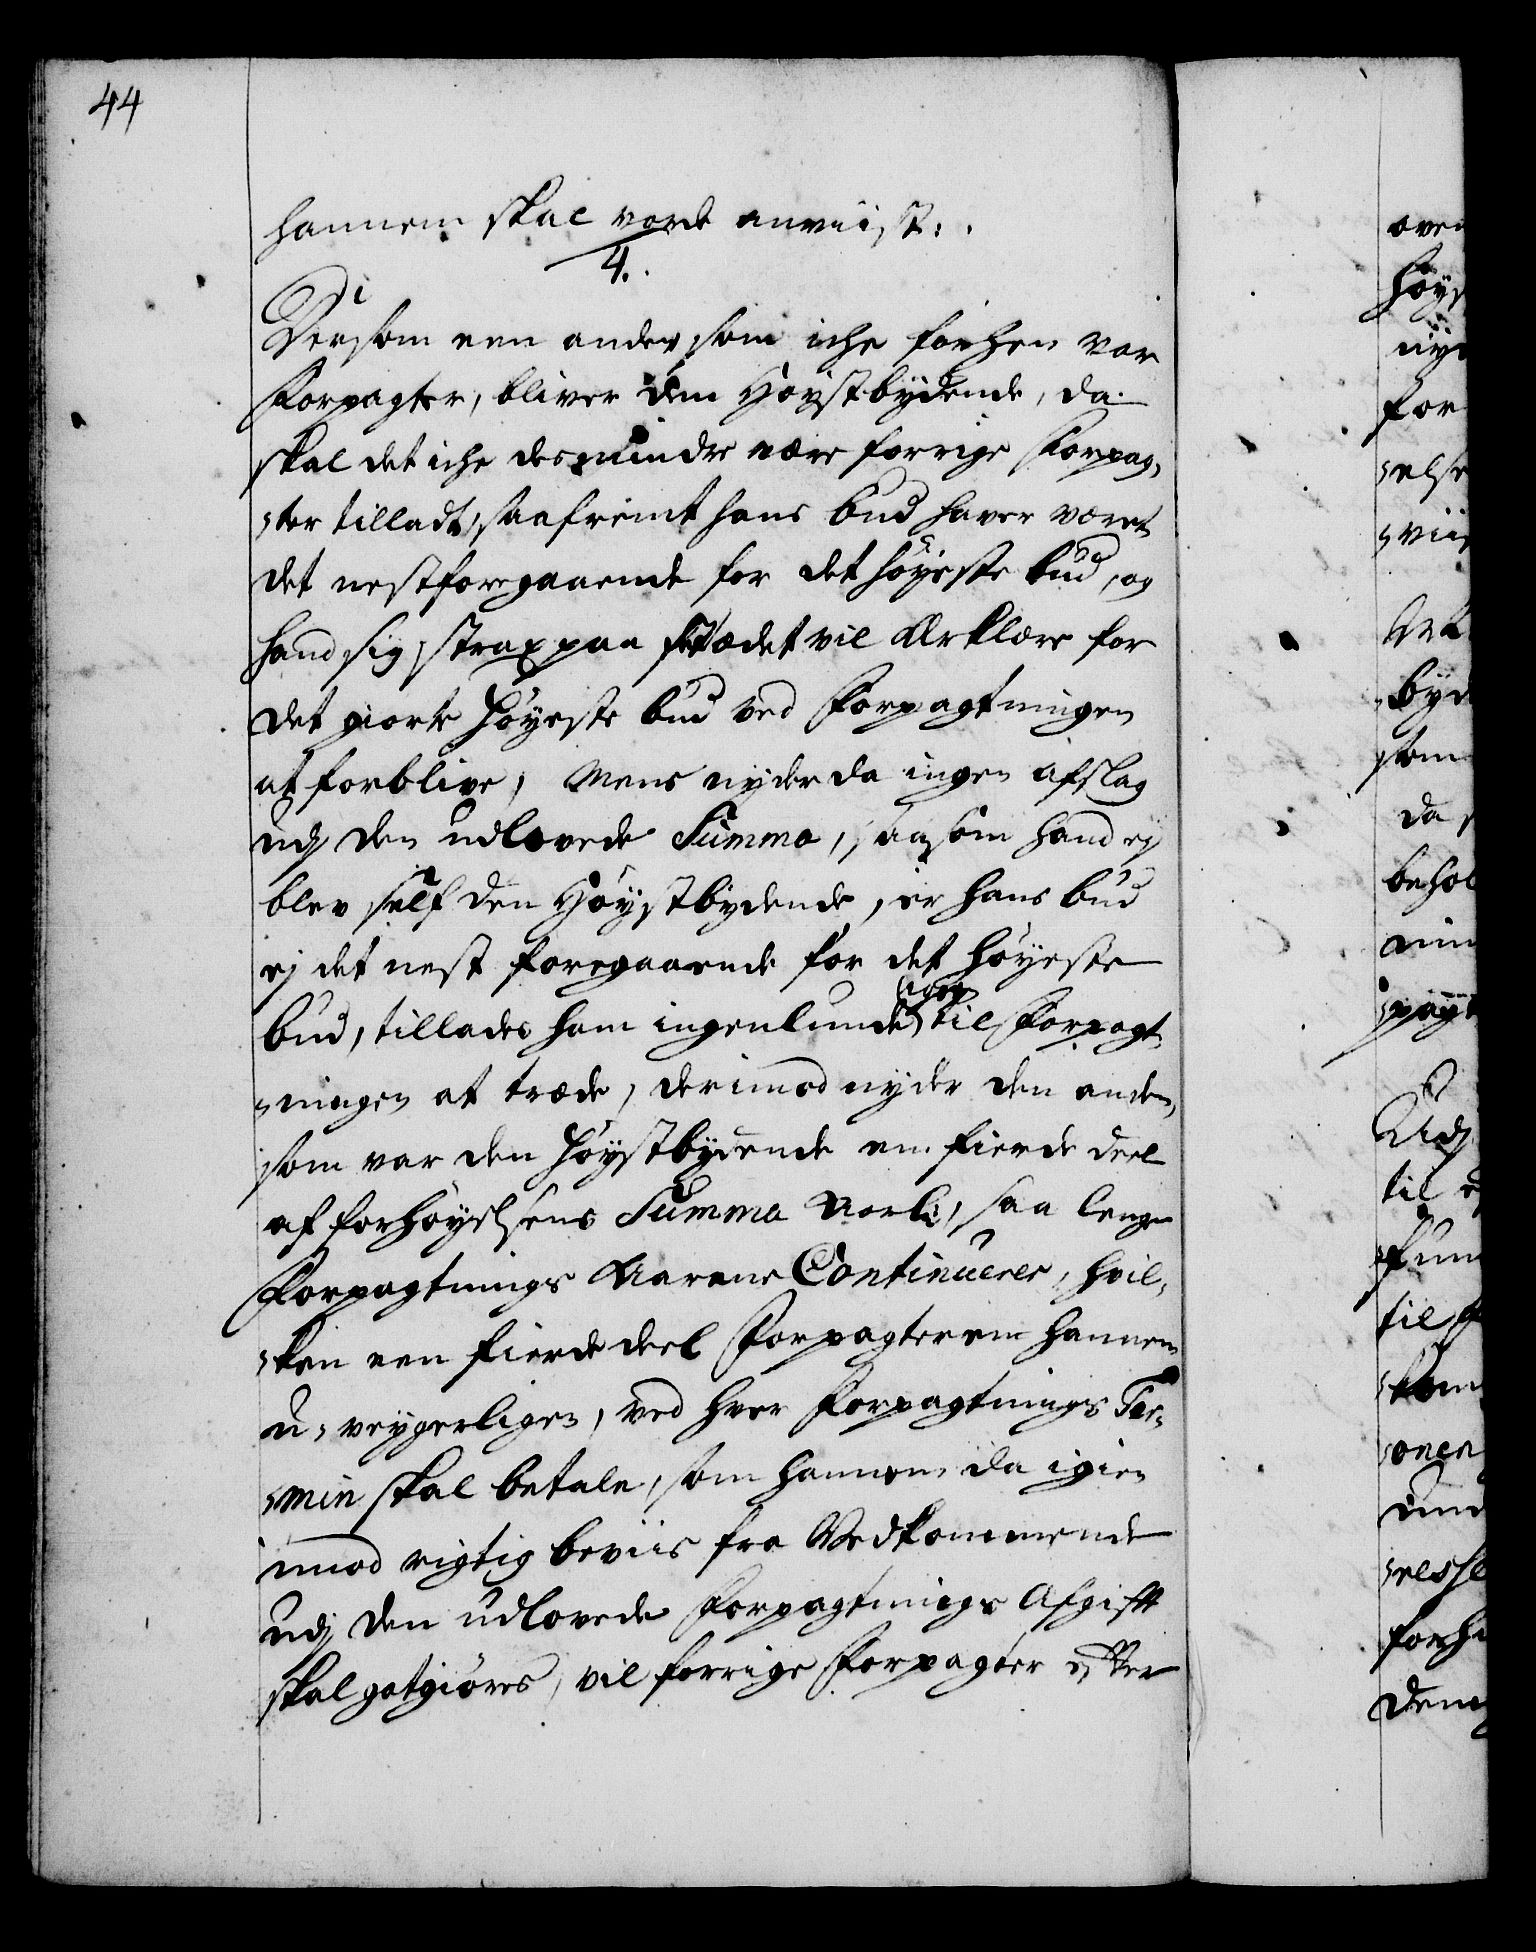 44
hannem skal vorde anviist.
4.
Dersom een anden som iche forhen var
Forpagter, bliver den Høystbydende, da
skal det iche desmindre være forrige Forpag¬
¬ter tilladt, saafremt hans bud haver været
det nestforegaaende for det høyeste bud, og
hand sig strax paa stædet vil Erklære for
det giorte høyeste bud ved Forpagtningen
at forblive, Mens nyder da ingen afslag
udj den udlovede Summa, saasom hand ej
blev self den Høystbydende, er hans bud
ej det nest foregaaende for det høyeste
bud, tillades ham ingenlunde igien til Forpagt¬
¬ningen at træde, derimod nyder den anden,
som var den høystbydende en fierde deel
af forhøyelsens Summa Aarl:, saa lenge
Forpagtnings Aarene Continuerer, hvil¬
¬ken een fierde deel Forpagteren hannem
u¬veygerligen, ved hver Forpagtnings Ter¬
¬min skal betale, som hannem da igien
imod rigtig beviis fra Vedkommende
udj den udlovede Forpagtnings Afgifft
skal gotgiøres, vil forrige Forpagter effter
oven
høys
nyd
for
¬else
¬viis
byd
som
da
behol
til
til
¬onen
forhe